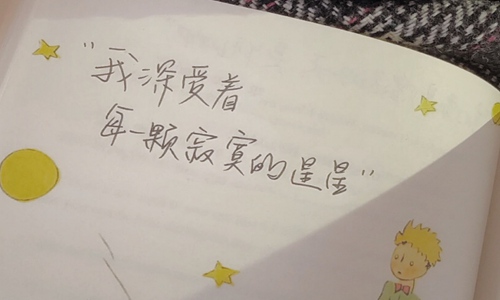 "我深爱着
每一颗寂寞的星星"